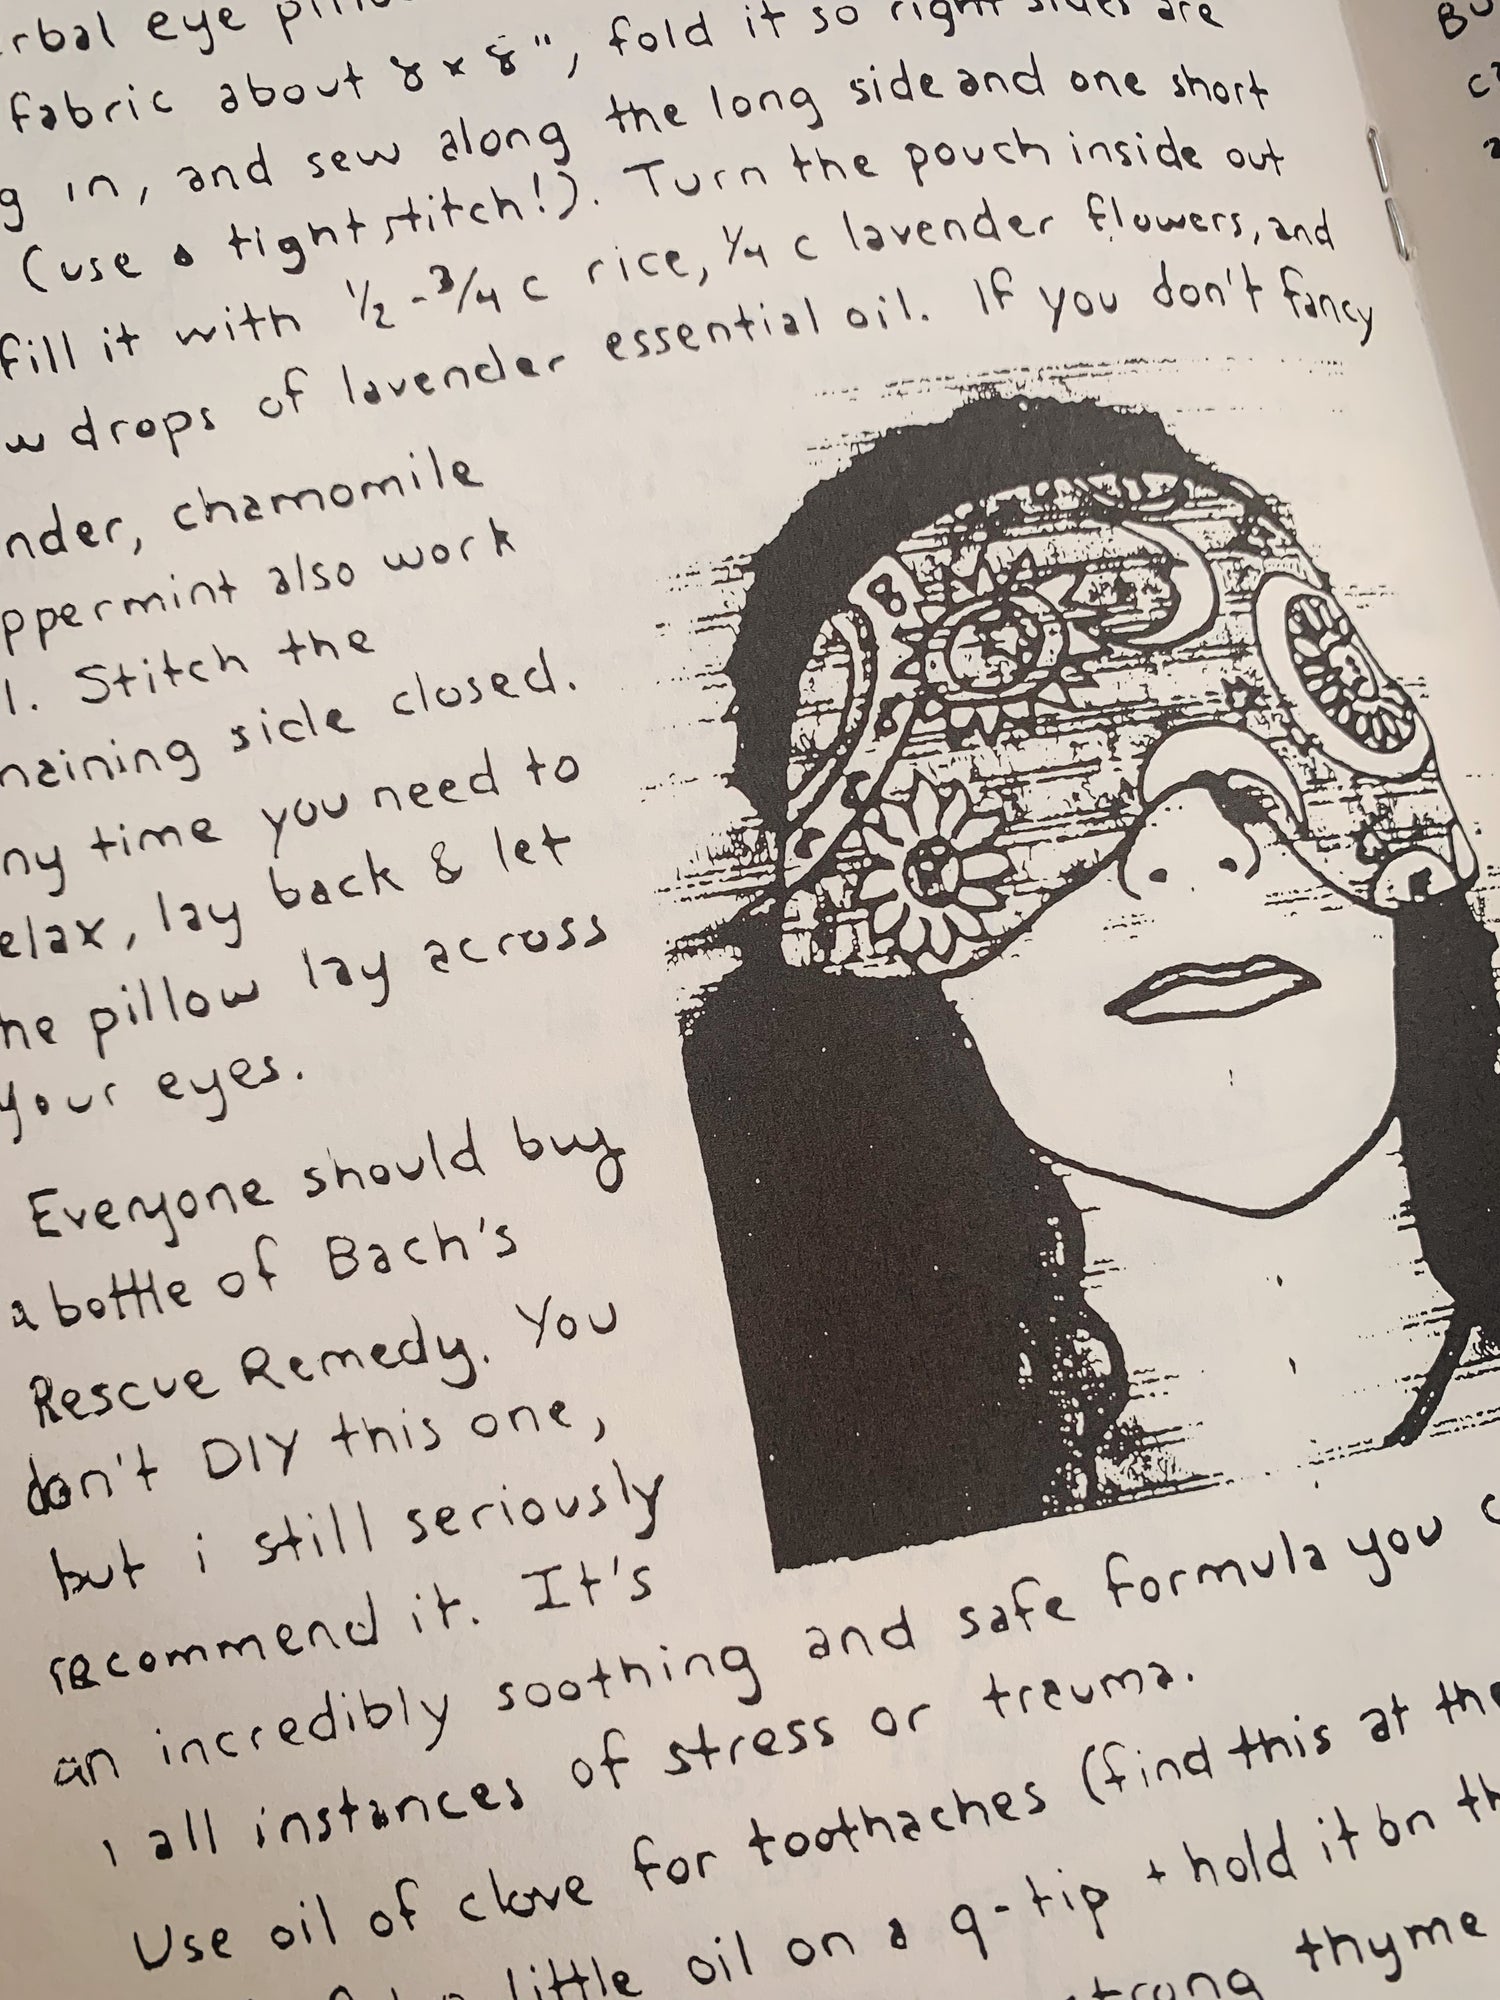 rbal eye
fabric about 8 x 8", fold it so right sides are
g in, and sew along the long side and one short
(use a tight stitch!). Turn the pouch inside out
fill it with 1/2 - 3/4 c rice, 1/4 c lavender flowers, and
w drops of lavender essential oil. If you don't fancy
nder, chamomile
ppermint also work
l. Stitch the
maining side closed.
ny time you need to
elax, lay back & let
he pillow lay across
your eyes.
Everyone should buy
a bottle of Bach's
Rescue Remedy. You
don't DIY this one,
but i still seriously
recommend it. It's
an incredibly soothing and safe formula you c
all instances of stress or trauma.
Use oil of clove for toothaches (find this at the
little oil on a q-tip + hold it on th
strong thyme